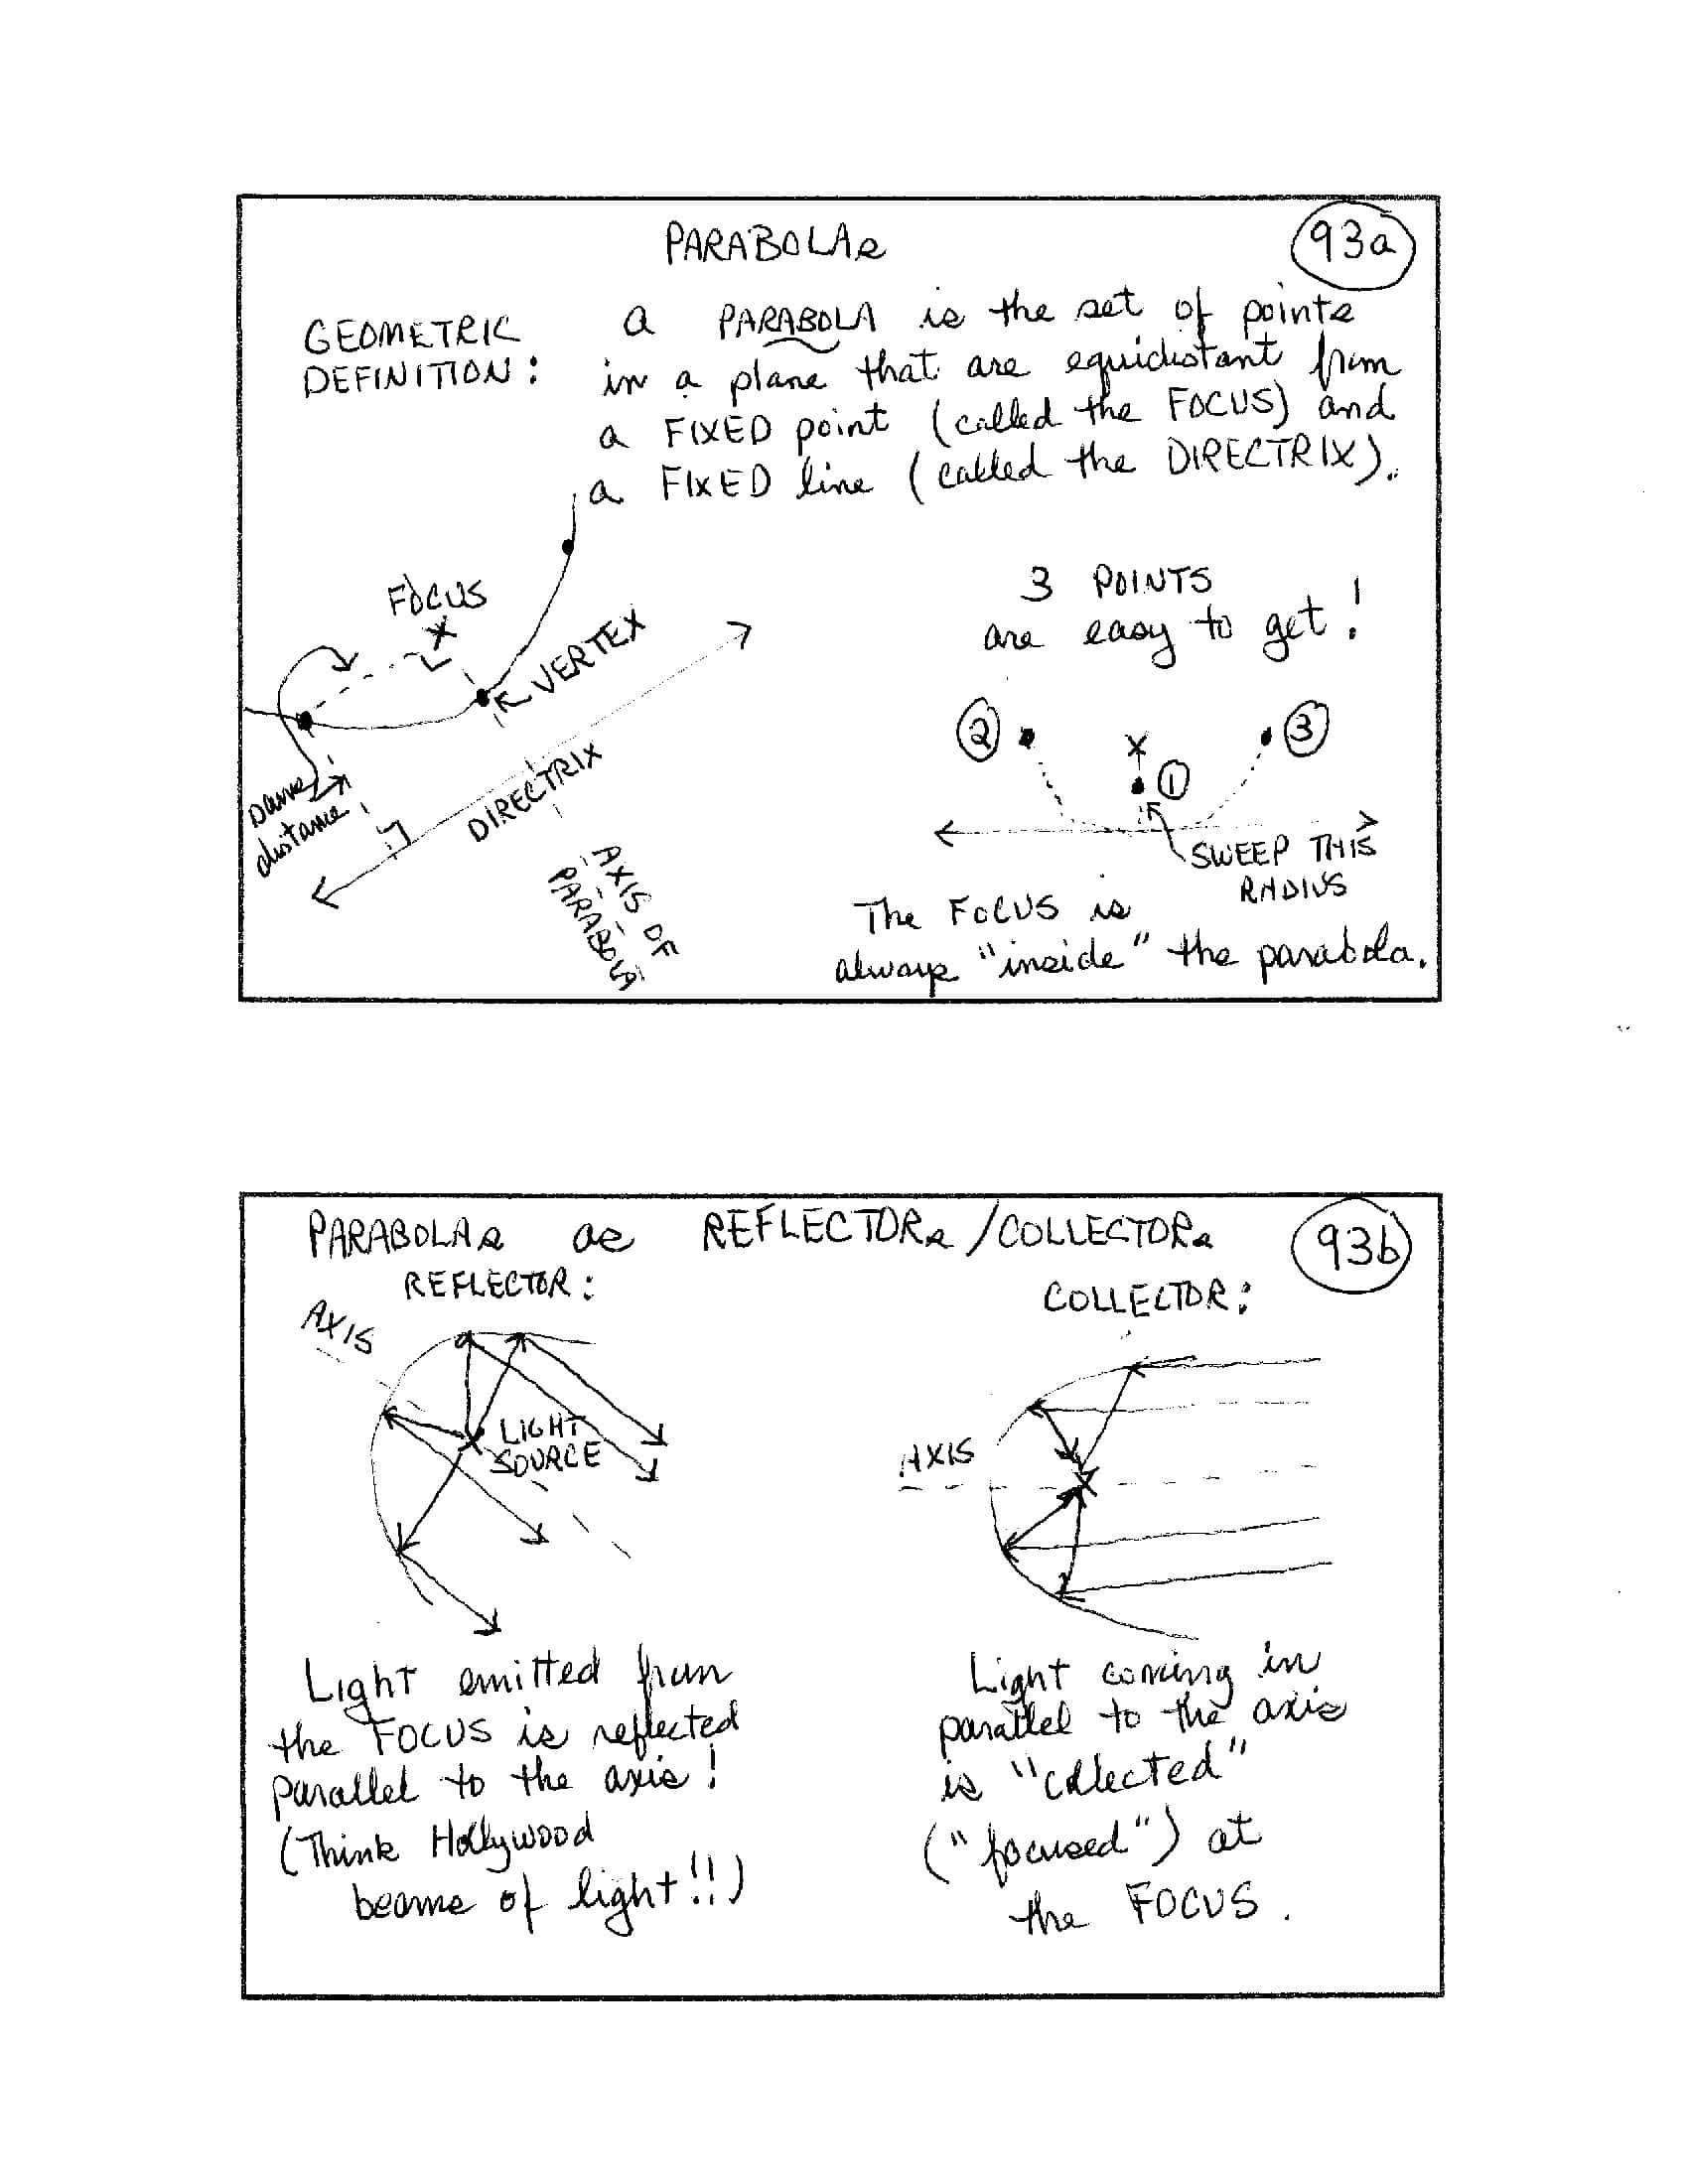 PARABOLAs
93a
GEOMETRIC
DEFINITION:
a PARABOLA is the set of points
in a plane that are equidistant from
a FIXED point (called the FOCUS) and
a FIXED line (called the DIRECTRIX).
FOCUS
VERTEX
DIRECTRIX
same
distance
AXIS OF
PARABOLA
3 POINTS
are easy to get!
2
X
3
1
SWEEP THIS
RADIUS
The FOCUS is
always "inside" the parabola.
PARABOLAs as REFLECTORs/COLLECTORs
93b
REFLECTOR:
AXIS
LIGHT
SOURCE
Light emitted from
the FOCUS is reflected
parallel to the axis!
(Think Hollywood
beams of light!!)
COLLECTOR:
AXIS
Light coming in
parallel to the axis
is "collected"
("focused") at
the FOCUS.